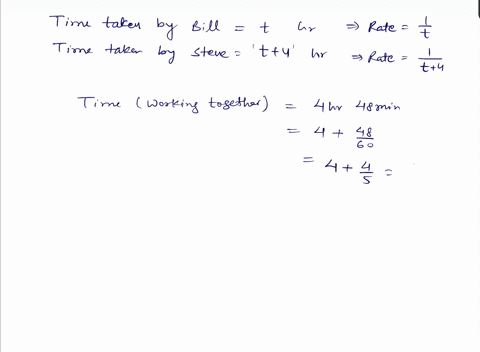 Time taken by Bill = t hr ⇒ Rate = 1/t
Time taken by Steve = 't+4' hr ⇒ Rate = 1/t+4
Time (Working together) = 4 hr 48 min
= 4 + 48/60
= 4 + 4/5 =